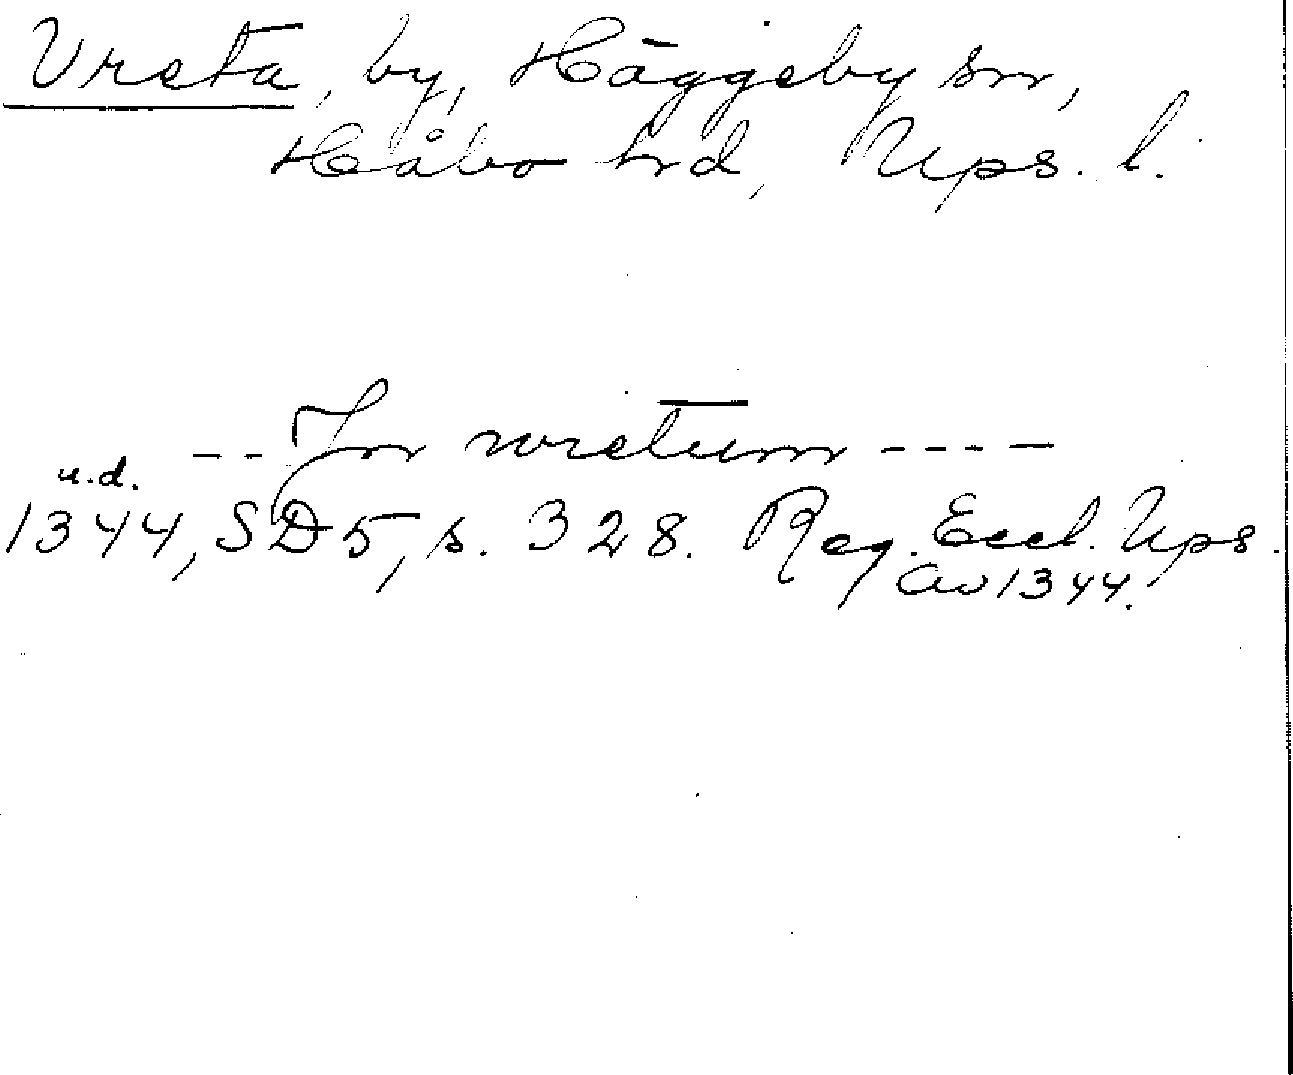 Vreta, by, Häggeby sn,
Håbo hd, Ups. l.
-- Jn wretum ----
u.d.
1344, SD 5, s. 328. Reg. Eccl. Ups.
av 1344.